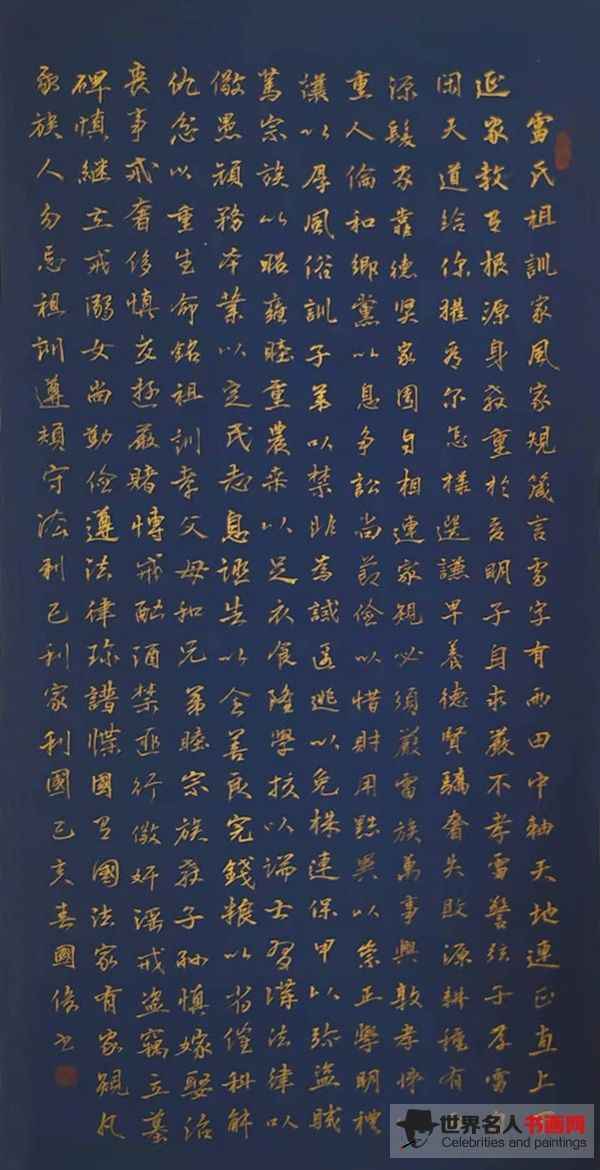 雷氏祖訓家風家規箴言雷字有雨田中軸天地連正直上
延家教有根源身教重於言明子自求嚴不孝雷警弦子孝雷
天道給你擺看你怎樣選謙卑養德賢驕奢失敗源耕種有
源德家國自相連家規必須嚴雷族萬事興敦孝悌
重人倫和鄉黨以息爭訟尚節儉以惜財用黜異以崇正學明禮
讓以厚風俗訓子弟以禁非為誡匿逃以免株連保甲以弥盜賊
篤宗族以昭雍睦重農桑以足衣食隆學校以端士習講法律以
儆愚頑務本業以定民志息誣告以全善良完錢糧以省催科解
仇忿以重生命銘祖訓孝父母和兄弟睦宗族教子孫慎嫁娶治
喪事戒奢侈慎交游嚴賭博戒酗酒禁邪行儆奸淫戒盜竊立墓
碑慎繼立戒溺女尚勤儉遵法律珍譜牒國有國法家有家規凡
我族人勿忘祖訓遵規守法利己利家利國己亥春國俊书
世界名人书画网
Celebrities and paintings